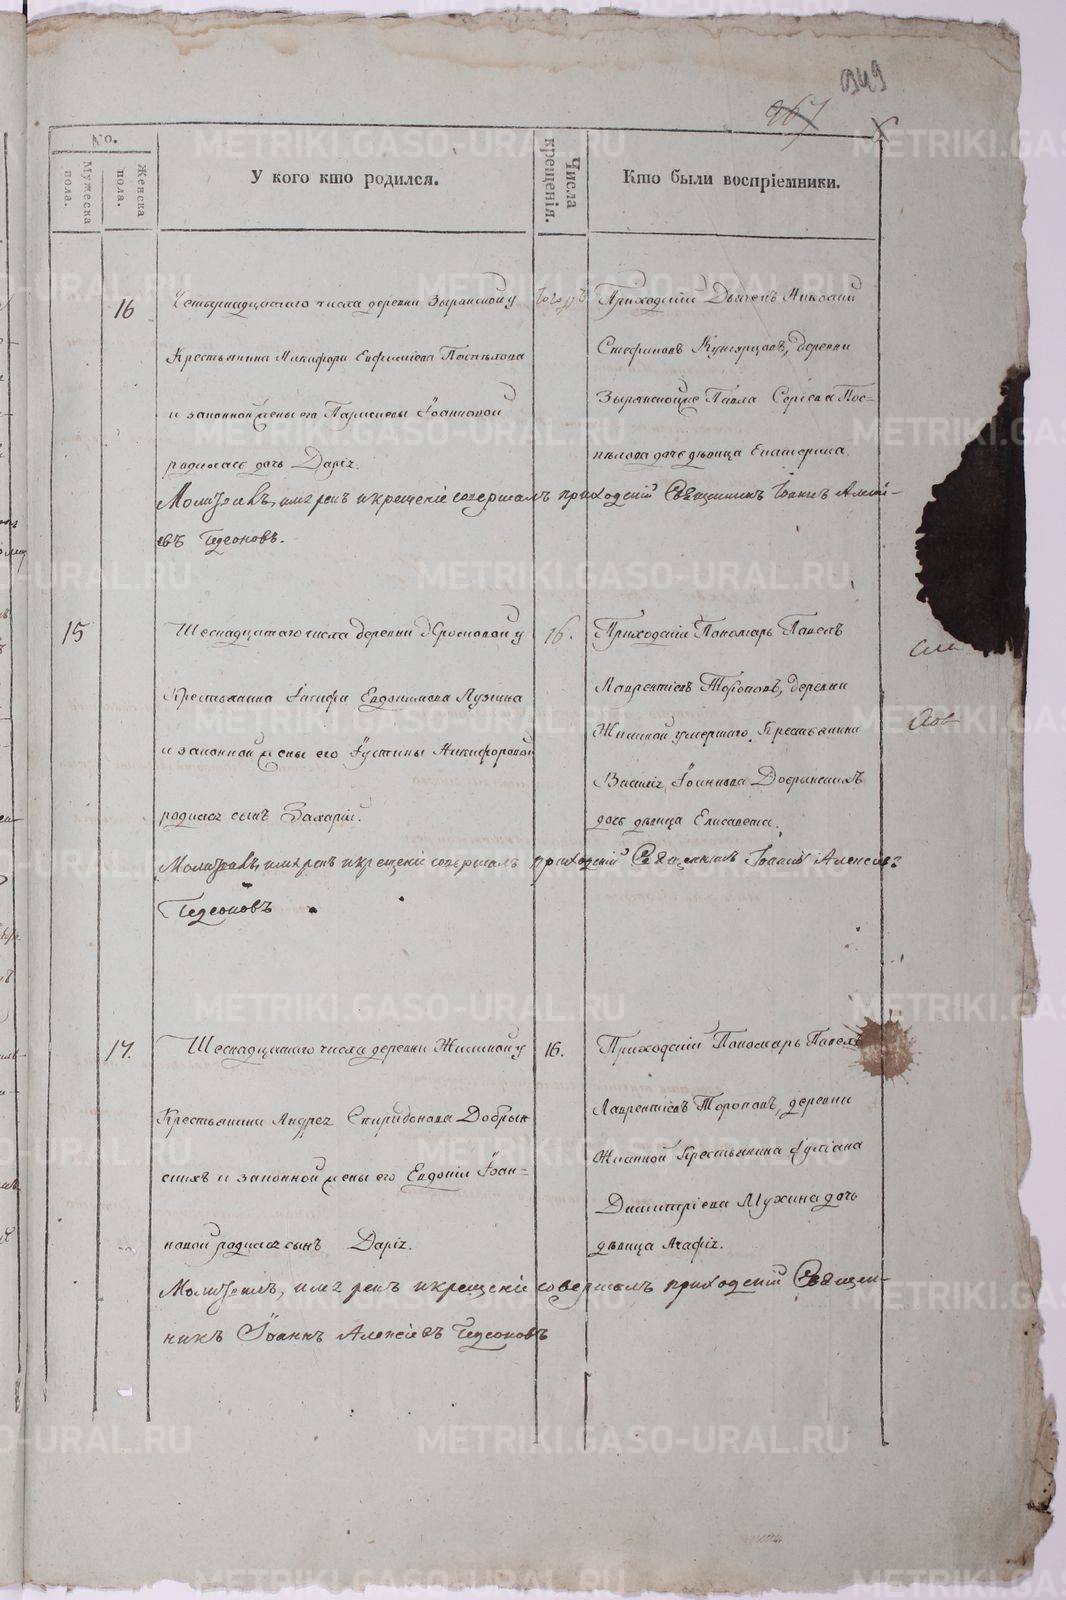 349
267
No.
Мужеска пола.
Женска пола.
У кого кто родился.
Числа крещенія.
Кто были воспріемники.
16
Четырнадцатаго числа деревни Зырянской у
Крестьянина Никифора Евфимиева Поспѣлова
и законной жены его Параскевы Іоанновой
родилась дочь Дарія.
Приходскій Дьячекъ Николай
Стефановъ Кунгурцовъ, деревни
Зырянской Павла Сергіева Пос-
пѣлова дочь дѣвица Екатерина.
Молитвов., имянар. и крещеніе совершалъ приходскій Священникъ Іоаннъ Алексі-
евъ Гедеоновъ.
15
Шеснадцатаго числа деревни у
Крестьянина Евдокимова Лузина
и законной жены его Іустины Никифоровой
родился сынъ Захарій.
16.
Приходскій Пономарь Павелъ
Лаврентіевъ Тороповъ, деревни
Жилиной умершаго Крестьянина
Василія Іоаннова Добрынскихъ
дочь дѣвица Елисавета.
крещеніе совершалъ приходскій Священникъ Іоаннъ Алексіевъ
Гедеоновъ
17.
Шеснадцатаго числа деревни Жилиной у
Крестьянина Андрея Спиридонова Добрын
скихъ и законной жены его Евдокіи Іоан-
новой родился сынъ Дарія.
16.
Приходскій Пономарь Павелъ
Лаврентіевъ Тороповъ, деревни
Жилиной Крестьянина
Димитріева Мухина дочь
дѣвица Агафія.
и крещеніе совершалъ приходскій Священ-
никъ Іоаннъ Алексіевъ Гедеоновъ
METRIKI.GASO-URAL.RU